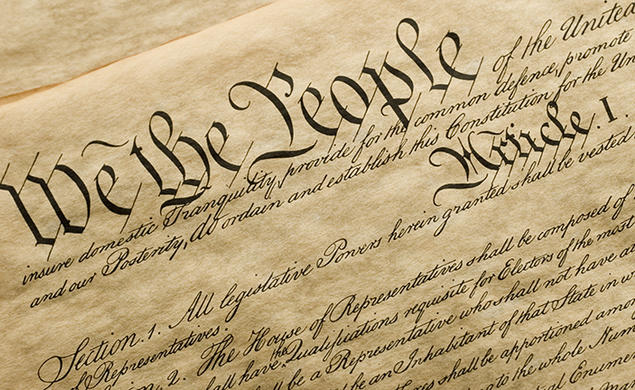 We the People of the United
insure domestic Tranquility, provide for the common defence, promote
and our Posterity, do ordain and establish this Constitution for the Un
Article. I.
Section. 1. All legislative Powers herein granted shall be vested
of Representatives.
Section. 2. The House of Representatives shall be composed of
shall have the Qualifications requisite for Electors of the most
shall be a Representative who shall not have at
be an Inhabitant of that State in w
shall be apportioned amo
the whole Num
Enumer